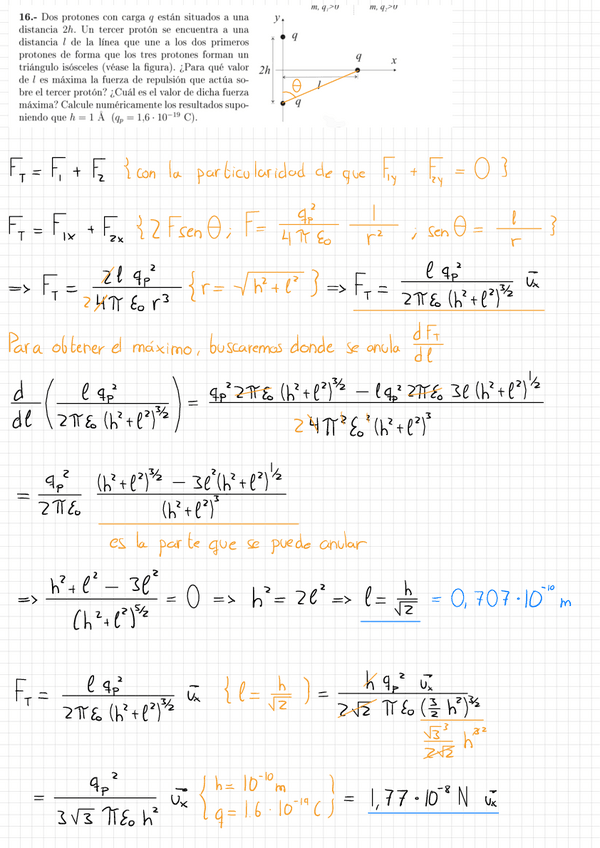 m, q₁>0 m, q₁>0
16.- Dos protones con carga q están situados a una
distancia 2h. Un tercer protón se encuentra a una
distancia l de la línea que une a los dos primeros
protones de forma que los tres protones forman un
triángulo isósceles (véase la figura). ¿Para qué valor
de l es máxima la fuerza de repulsión que actúa so-
bre el tercer protón? ¿Cuál es el valor de dicha fuerza
máxima? Calcule numéricamente los resultados supo-
niendo que h = 1 Å (qₚ = 1,6 · 10⁻¹⁹ C).
y
q
q
x
2h
θ
l
q
F_T = F₁ + F₂ {con la particularidad de que F₁y + F₂y = 0}
F_T = F₁x + F₂x {2 F sen θ; F = qₚ²/(4πε₀) 1/r² ; sen θ = l/r}
=> F_T = 2l qₚ²/(2 4π ε₀ r³) {r = √(h²+l²)} => F_T = l qₚ²/(2πε₀ (h²+l²)^(3/2)) u⃗ₓ
Para obtener el máximo, buscaremos donde se anula dF_T/dl
d/dl (l qₚ²/(2πε₀ (h²+l²)^(3/2))) = (qₚ² 2πε₀ (h²+l²)^(3/2) − l qₚ² 2πε₀ 3l (h²+l²)^(1/2))/(2 4π² ε₀² (h²+l²)³)
= qₚ²/(2πε₀) ((h²+l²)^(3/2) − 3l²(h²+l²)^(1/2))/(h²+l²)³
es la parte que se puede anular
=> (h²+l² − 3l²)/(h²+l²)^(5/2) = 0 => h² = 2l² => l = h/√2 = 0,707·10⁻¹⁰ m
F_T = l qₚ²/(2πε₀ (h²+l²)^(3/2)) u⃗ₓ {l = h/√2} = h qₚ² u⃗ₓ/(2√2 πε₀ (3/2 h²)^(3/2))
√3³/(2√2) h³²
= qₚ²/(3√3 πε₀ h²) u⃗ₓ {h = 10⁻¹⁰ m
q = 1.6 · 10⁻¹⁹ C} = 1,77·10⁻⁸ N u⃗ₓ